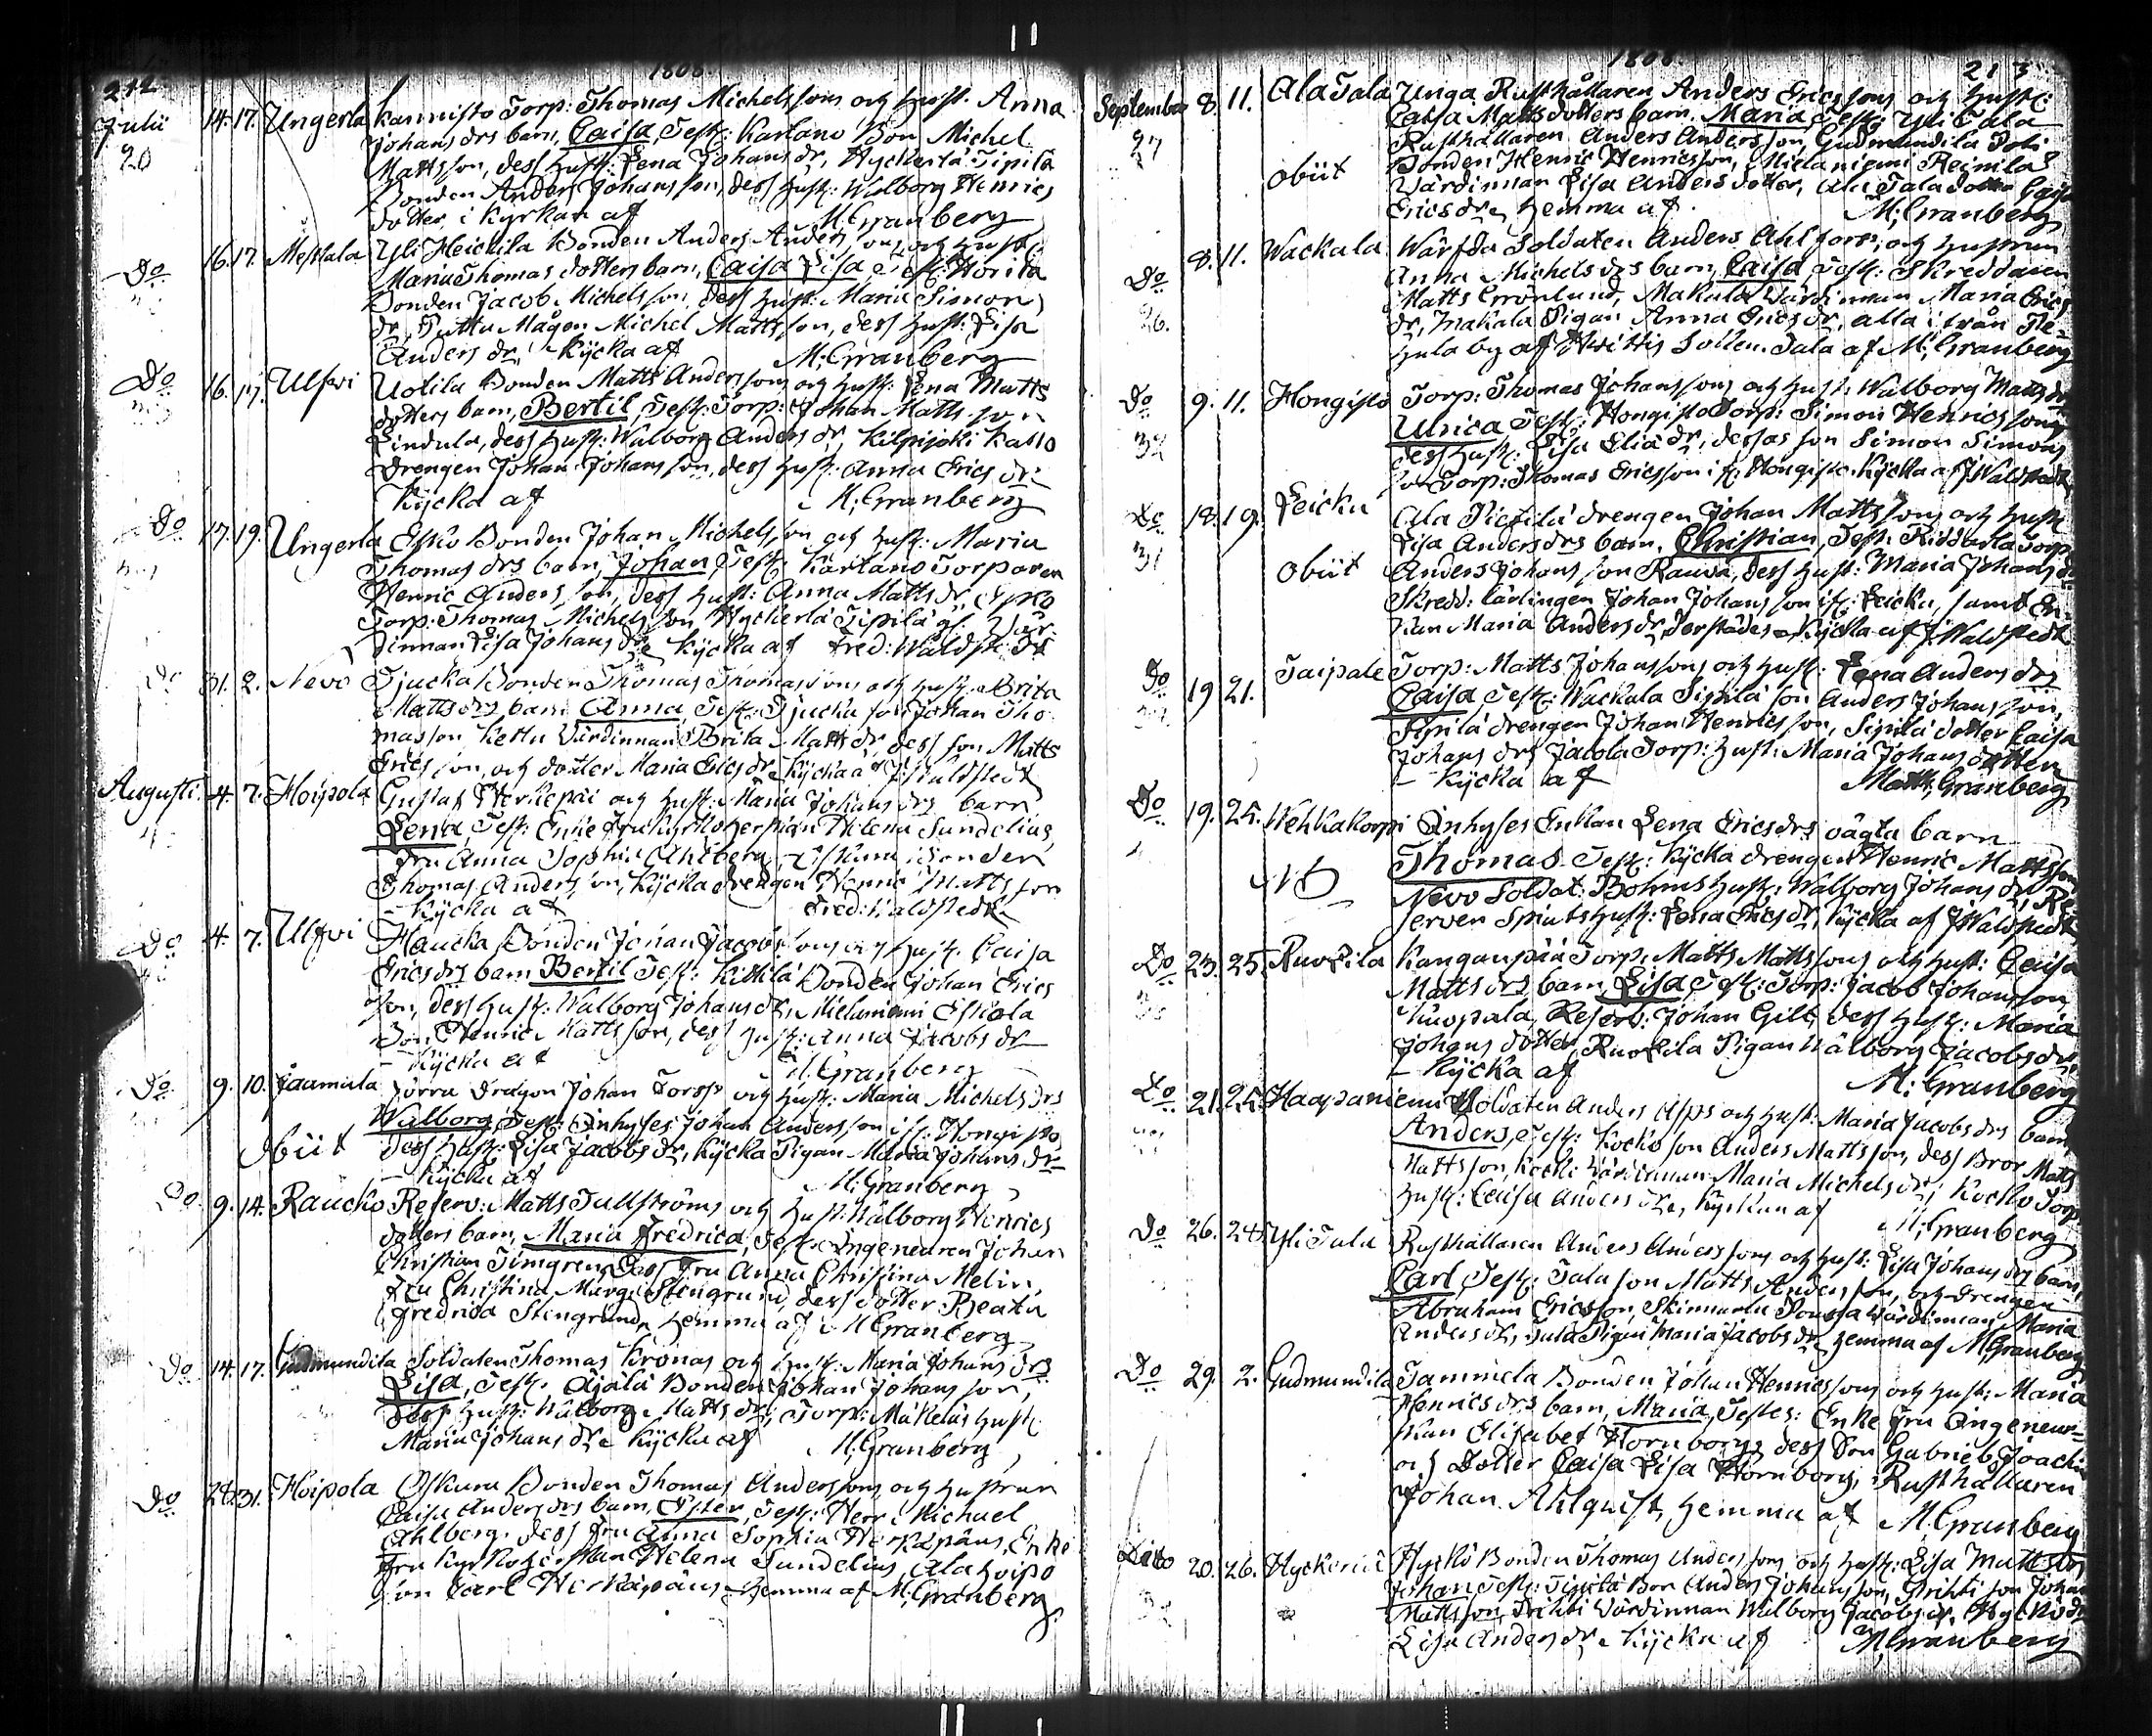 1808.
212
Julii 14. 17. Ungerla Kannisto Torp: Thomas Michelssons och hust. Anna
20 Johans drs barn, Caisa, Test: Kartano Bon Michel
Mattsson, dess hust: Lena Johans dr, Hyckerlä Sipilä
Bonden Anders Johansson, dess hust: Walborg Henrics
dotter i Kyrkan af M: Granberg
Do 16. 17. Mestala Yli Heickila Bonden Anders Anderssons och hust:
Maria Thomas dotters barn, Caisa Lisa Test:
Bonden Jacob Michelsson, dess hust: Maria Simons
dr, Mågen Michel Mattsson, dess hust: Lisa
Anders dr, Kycka af M: Granberg
Do 16. 17. Ulfvi Uotila Bonden Matts Anderssons och hust: Lena Matts
dotters barn, Bertil, Test: Torp: Johan Matts son
Lindula, dess hust: Walborg Anders dr, Kilpijoki Kallo
Drengen Johan Johansson, dess hust: Anna Erics dr
Kycka af M: Granberg
Do 17. 19. Ungerla Esko Bonden Johan Michelsson och hust: Maria
Thomas drs barn, Johan, Test: Kartano Torparen
Henric Andersson, dess hust: Anna Matts dr, Esko
Torp: Thomas Michelsson, Hyckerlä Sipilä gl. Vär-
dinnan Lisa Johans dr, Kycka af Fred: Waldstedt
Do 31. 2. Nevo Tjucka Bonden Thomas Thomassons och hust: Brita
Matts drs barn Anna, Test: Tjucka son Johan Tho-
masson Kettu Värdinnan Brita Matts dr, dess son Matts
Ericsson, och dotter Maria Erics dr, Kycka af F: Waldstedt
Augusti 4. 7. Hoipola Gustaf Herkepäi och hust: Maria Johans drs barn
Lena Test: Enke Fru Kyrkoherskan Helena Sundelius,
Fru Anna Sophia Ahlberg, Oskura Bonden
Thomas Andersson, Kycka drengen Henric Mattsson
Kycka af Fred: Waldstedt
Do 4. 7. Ulfvi Haucka Bonden Johan Jacobssons och hust. Caisa
Erics drs barn Bertil Test: Kittilä Bonden Johan Erics
son, dess hust: Walborg Johans dr, Mielaniemi Eskola
Bon Henric Mattsson, dess hust: Anna Jacobs dr
Kycka af M: Granberg
Do 9. 10. Jaamala Jorra Dragon Johan Forss och hust: Maria Michels drs
Walborg, Test: Inhyses Johan Andersson if: Hongisto,
Obiit dess hust: Lisa Jacobs dr, Kycka Pigan Maria Johans dr
Kycka af M: Granberg
Do 9. 14. Raucko Reserv: Matts Tullströms och hust: Walborg Henrics
dotters barn, Maria Fredrica, Test: Ingeneuren Johan
Christian Timgren, Dess Fru Anna Christina Melin,
Fru Christina Marg: Stengrund, dess dotter Beata
Fredrica Stengrund, hemma af M Granberg
Do 14. 17. Gudmundila Soldaten Thomas Kronas och hust: Maria Johans drs
Lisa, Test: Äjälä Bonden Johan Johansson,
dess hust: Walborg Matts dr, Torp: Mäkeläs hust:
Maria Johans dr, Kycka af M. Granberg
Do 28. 31. Hoipola Oskura Bonden Thomas Anderssons och hustrun
Caisa Anders drs barn, Ester, Test: Herr Michael
Ahlberg, dess Fru Anna Sophia Herkäpäus, Enke
Fru Kyrkoherskan Helena Sundelius, Ala hoipo
son Carl Herkäpäus hemma af M; Granberg
1808.
213
September 8. 11. Ala Tala Unga Rusthållaren Anders Ericssons och hust:
27 Caisa Matts dotters barn, Maria, Test: Yli Tala
Rusthållaren Anders Andersson, Gudmundila
Bonden Henric Henricsson, Mielaniemi Heinila
obiit Värdinnan Lisa Anders dotter, Ala Tala dotter Caisa
Erics dr, hemma af M; Granberg
Do 8. 11. Wackala Warfda Soldaten Anders Ahlfors och hustrun
26. Anna Michels drs barn, Caisa, Test: Skreddaren
Matts Grönlund, Makula Värdinnan Maria Erics
dr, Makala Pigan Anna Erics dr, alla ifrån
by af Hvittis Sokn. af M; Granberg
Do 9. 11. Hongisto Torp: Thomas Johanssons och hust: Walborg Matts drs
32 Ulrica, Test: Hongisto Torp: Simon Henricsson,
dess hust: Lisa Eliæ dr, dessas son Simon Simons
son Torp: Thomas Ericsson if: Hongisto, Kycka af F Waldstedt
Do 18. 19. Leicku Ala Pietilä drengen Johan Mattssons och hust:
31 Lisa Anders drs barn, Christian, Test: Riddarla Torp:
obiit Anders Johansson Rauvä, dess hust: Maria Johans dr
Skredd: Lärlingen Johan Johansson if: Leicku, samt En-
kan Maria Anders dr derstädes, Kycka af F: Waldstedt
Do 19 21. Taipale Torp: Matts Johanssons och hust: Lena Anders drs
Caisa, Test: Wackala Sipilä son Anders Johansson,
Sipilä drengen Johan Henricsson, Sipilä dotter Caisa
Johans dr, Jacola Torp: hust: Maria Johans dotter
Kycka af Matth; Granberg
Do 19. 25. Wehkakorpi Inhyses Enkan Lena Erics drs oägta barn
NB Thomas Test: Kycka drengen Henric Mattsson
Nevo Soldat: Bohms hust: Walborg Johans dr, Re-
serven Spiuts hust: Lena Erics dr, Kycka af F Waldstedt
Do 23. 25. Ruokila Kanganpää Torp: Matts Mattssons och hust: Caisa
Matts drs barn, Lisa, Test: Torp: Jacob Johansson
Kuopala, Reserv: Johan Gilt, dess hust: Maria
Johans dotter, Ruokila Pigan Walborg Jacobs dr,
Kycka af M: Granberg
Do 21. 25. Haapaniemi Soldaten Anders Asps och hust: Maria Jacobs drs barn
Anders, Test: Kocko son Anders Mattsson, dess Bror Matts
Mattsson, Kocko Värdinnan Maria Michels dr, Kocko Torp
hust: Caisa Anders dr, Kyrkan af M: Granberg
Do 26. 28. Yli Tala Rusthållaren Anders Anderssons och hust: Lisa Johans drs barn
Carl, Test: Tala son Matts Andersson, och drengen
Abraham Ericsson, Skinnarla Värdinnan Maria
Anders dr, Tala Pigan Maria Jacobs dr, hemma af M; Granberg
Do 29. 2. Gudmundila Tammela Bonden Johan Henricssons och hust: Maria
Henrics drs barn, Maria, Testes: Enke Fru Ingeneur-
skan Elisabet Hornborg, dess Son Gabriel Joachim
och Dotter Caisa Lisa Hornborg, Rusthållaren
Johan Ahlquist, hemma af M. Granberg
Ditto 20. 26. Hyckerlä Hyckö Bonden Thomas Anderssons och hust: Lisa Matts drs
Johan Test: Sipilä Bon Anders Johansson, Prihti son Johan
Mattsson, Prihti Värdinnan Walborg Jacobs dr, Hyckö dr
Lisa Anders dr, Kycka af M; Granberg